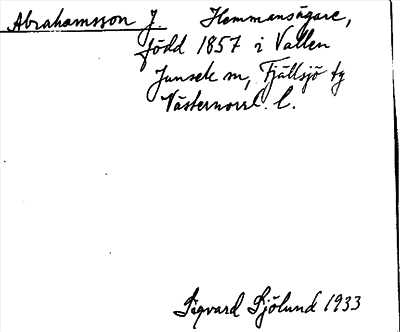 Abrahamsson J. Hemmansägare,
född 1857 i Vallen
Junsele sn, Fjällsjö tg
Västernorrl. l.
Sigvard Sjölund 1933